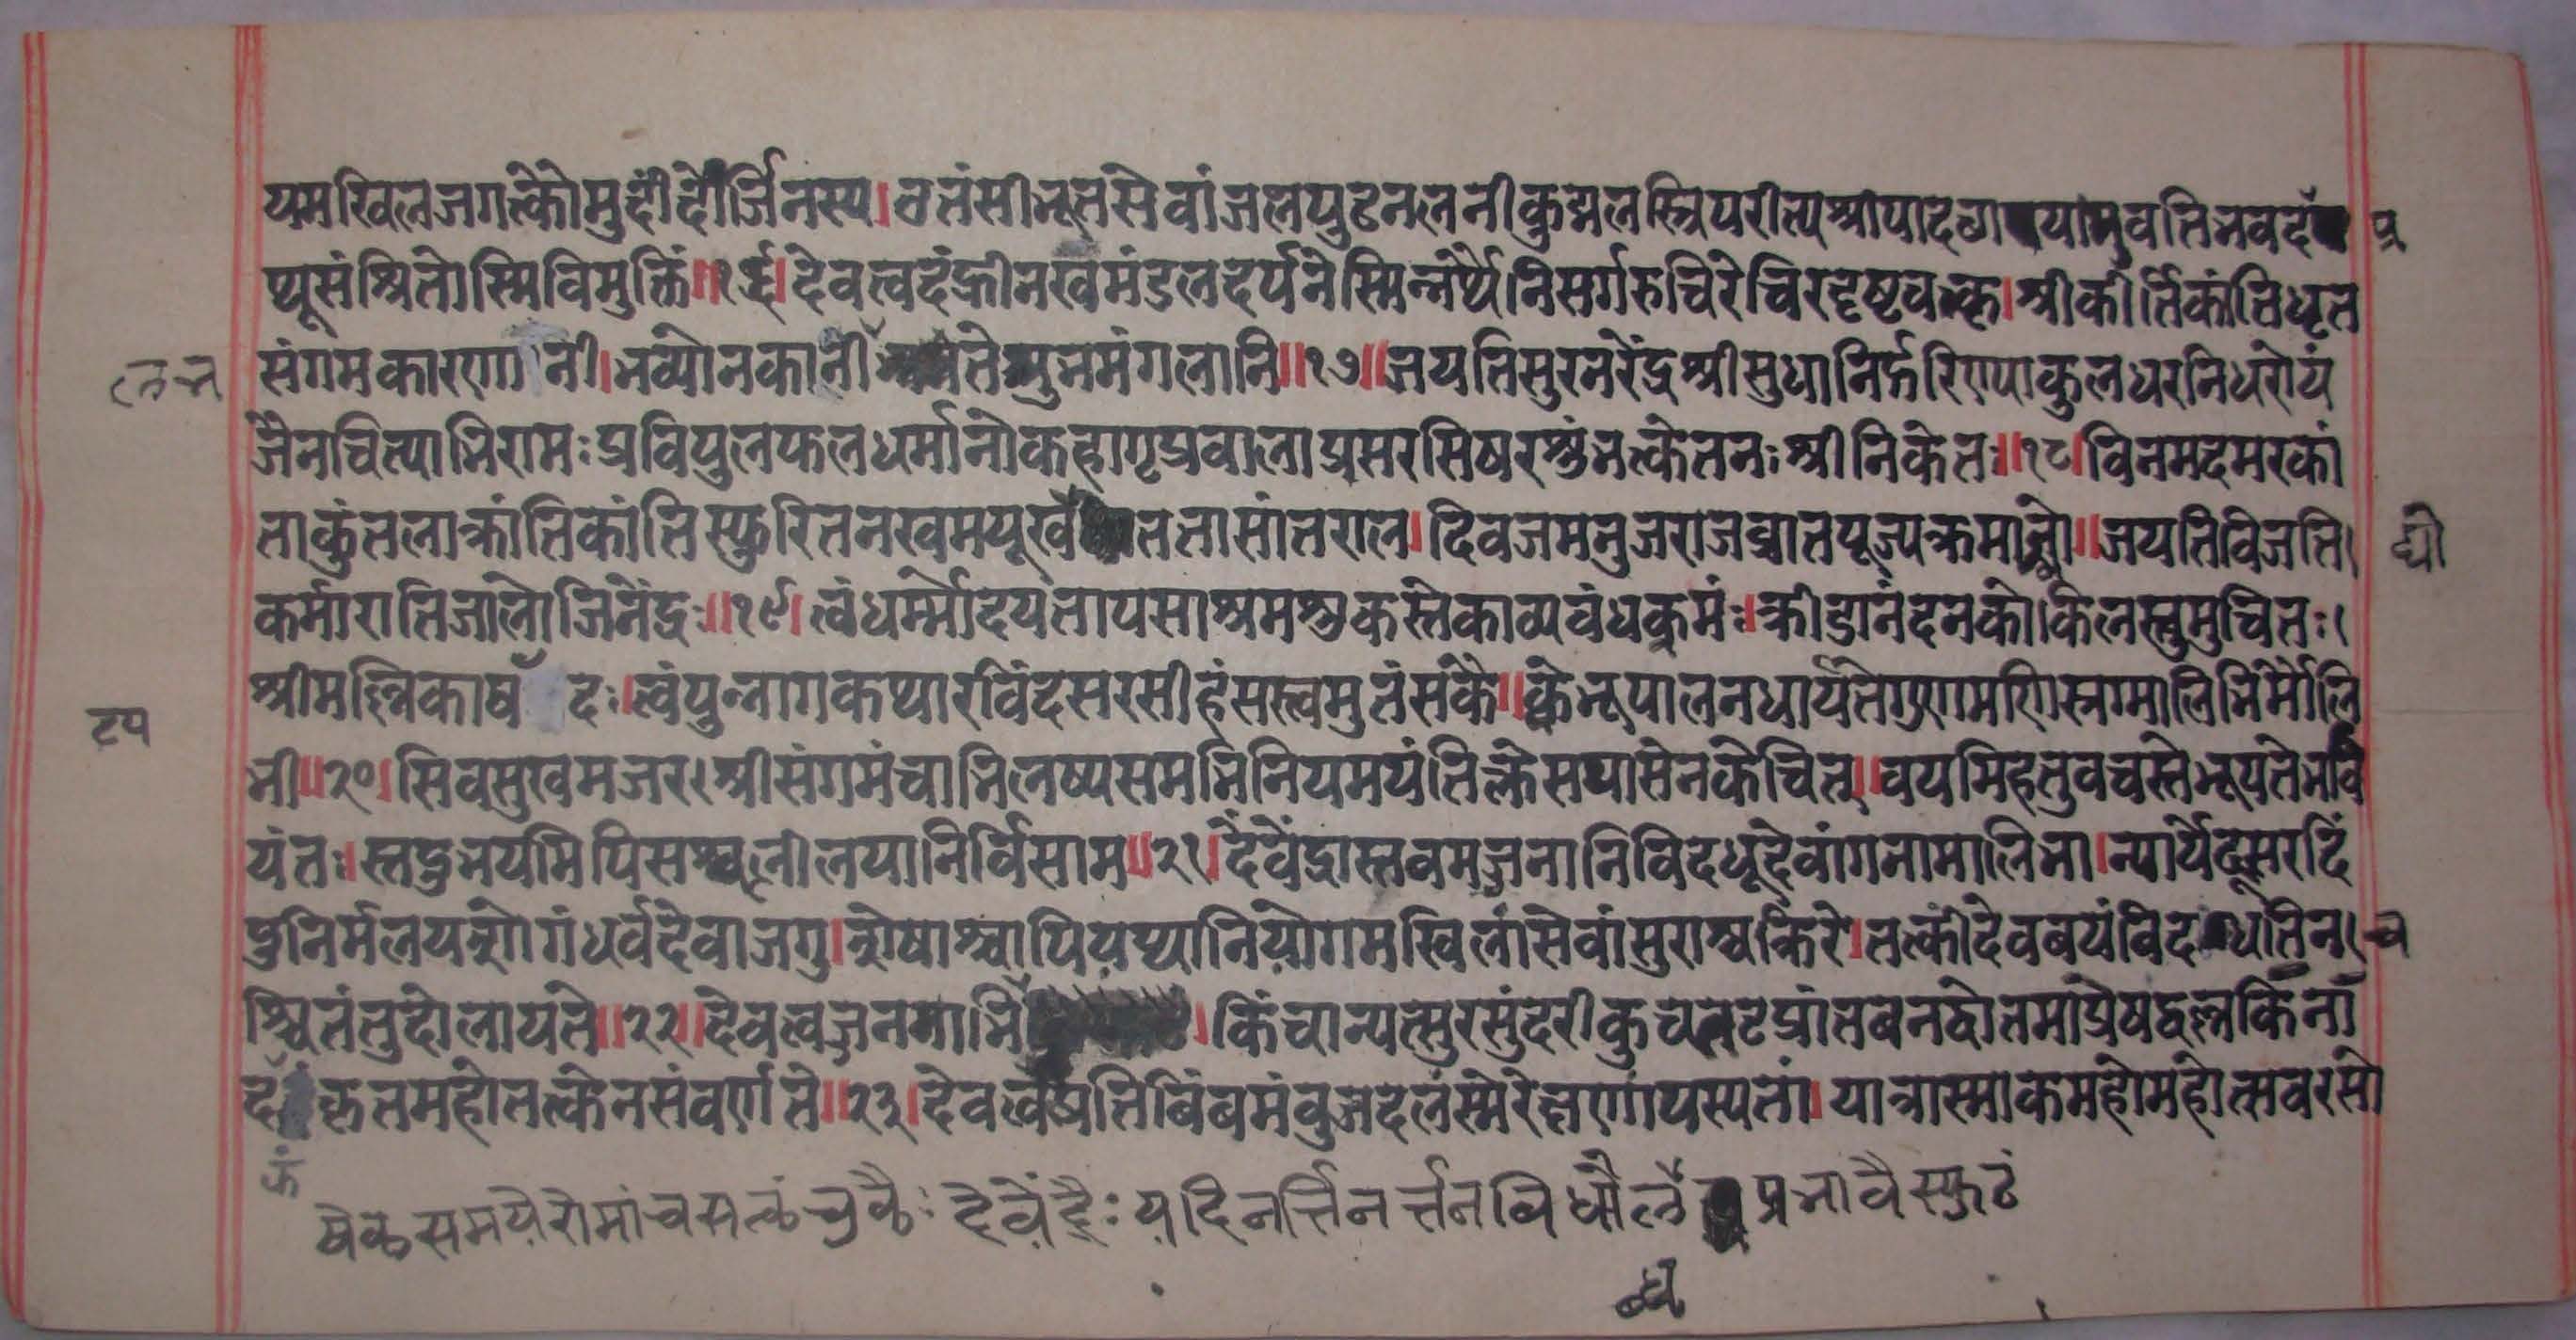 यमखिलजगत्कौमुदींदोर्जिनस्य। वतंसीभूतसेवांजलपुटनलनीकुद्मलस्त्रिपरीत्यश्रीपादछाययामुवतिभवदं प्र
प्यूसंश्रितोस्मिविमुक्तिं॥१६। देवत्वदंह्रीनखमंडलदर्पनेस्मिन्नर्घ्येनिसर्गरुचिरेचिरदृष्टवक्त्र। श्रीकीर्तिकांतिधृत
संगमकारणानी। भव्योनकानीलभतेसुभमंगलानि॥१७॥ जयतिसुरनरेंद्रश्रीसुधानिर्झरिण्याकुलधरनिधरोयं
जैनचित्याभिरामः प्रविपुलफलधर्मानोकहागृप्रवालाप्रसरसिषरशुंभत्केतनः श्रीनिकेतः॥१८। विनमदमरकां
ताकुंतलाक्रांतिकांतिस्फुरितनखमयूखद्योतितासांतराल। दिवजमनुजराजव्रातपूज्यक्रमाब्जो॥ जयतिविजति।
कर्मारातिजालोजिनेंद्रः॥१९। त्वंधर्म्मोदयतापसाश्रमशुकस्तेकाव्यवंधक्रमं। क्रीडानंदनकोकिलस्त्वमुचितः।
श्रीमल्लिकाषट्पदः। त्वंपुन्नागकथारविंदसरसीहंसस्त्वमुतंसकै॥ कैर्भूपालनधार्यतेगुणमणिस्रग्मालिभिर्मौलि
भी॥२०। सिवसुखमजर। श्रीसंगमंचाभिलष्यसमभिनियमयंतिक्लेसपासेनकेचित्॥ वयमिहतुवचस्तेभूपतेभवि
यंतः। स्तदुभयमिपिसश्वल्लीलयानिर्विसाम॥२१। देवेंद्रास्तवमज्जनानिविदधूदेवांगनामालिभा। न्यार्यैदूसरदिं
दुनिर्मलयशोगंधर्वदेवाजगु। शेषाश्चापियथानियोगमखिलांसेवांसुराश्चक्रिरे। तत्कींदेवबयंविदध्मातिन। च
श्चितंतुदोलायते॥२२॥ देवत्वज्जनमाभि। किंचान्यत्सुरसुंदरीकुचतटप्रांतबनद्धोतमाप्रेषद्वल्लकिना
दझंकृतमहोतत्केनसंवर्ण्णते॥२३। देवत्वत्प्रतिबिंबमंवुजदलंस्मेरेक्षणांपस्यतां। यात्रास्माकमहोमहोत्सवरसो
षेकसमयेरोमांचसत्कंचुकैः देवेंद्रैः यदिनर्त्तिनर्त्तनविधौलब्धप्रभावैस्फुटं
ब्ध